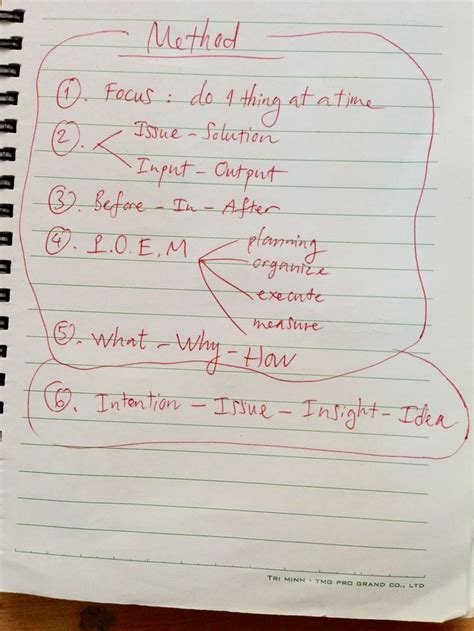 Method
①. Focus : do 1 thing at a time
②. Issue - Solution
Input - Output
③. Before - In - After
④. P.O.E.M planning
organize
execute
measure
⑤. What - Why - How
⑥. Intention - Issue - Insight - Idea
TRI MINH - TMG PRO GRAND CO., LTD